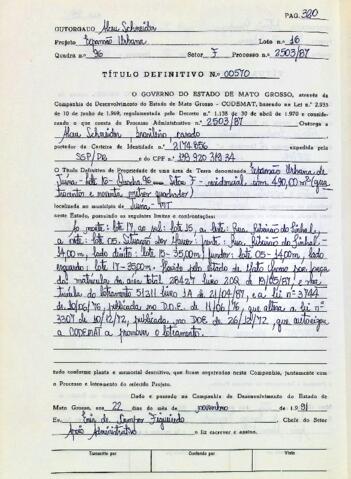 PAG. 320
OUTORGADO Alceu Schneider
Projeto Expansão Urbana Lote n.º 16
Quadra n.º 96 Setor F Processo n.º 2503/87
TÍTULO DEFINITIVO N.º 00570
O GOVERNO DO ESTADO DE MATO GROSSO, através da
Companhia de Desenvolvimento do Estado de Mato Grosso - CODEMAT, baseado na Lei n.º 2.935
de 10 de junho de 1.969, regulamentada pelo Decreto n.º 1.138 de 30 de abril de 1.970 e considerando
o que consta do Processo Administrativo n.º 2503/87 Outorga a
Alceu Schneider brasileiro casado
portador da Carteira de Identidade n.º 2174.856 expedida pela
SSP/PR e do CPF n.º
O Título Definitivo de Propriedade de uma área de Terra denominada Expansão Urbana de
Juína - Lote 16 - Quadra 96 Setor F - residencial, com 490,00 m² (quatrocentos e noventa metros quadrados)
localizada no município de Juína - MT
neste Estado, possuindo os seguintes limites e confrontações:
Ao norte: lote 17, ao sul: lote 15, a leste: Rua
a oeste: lote 05. Frente: Rua
14,00 m, lado direito: lote 15 - 35,00 m, fundos: lote 05 - 14,00 m, lado
esquerdo: lote 17 - 35,00 m. Havido pelo Estado de Mato Grosso
matrícula da área total 28427 livro 209 de 19/05/87, e
do loteamento 51211 livro 3A de 21/04/87, e a Lei nº 3744
de 10/06/76, publicada no D.O.E. de 11/06/76, que altera a Lei nº
3307 de 10/12/72, publicada no DOE de 26/12/72, que autoriza
a CODEMAT a promover o loteamento.
tudo conforme planta e memorial descritivo, que ficam arquivados nesta Companhia, juntamente com
o Processo e loteamento do referido Projeto.
Dado e passado na Companhia de Desenvolvimento do Estado de
Mato Grosso, aos 22 dias do mês de novembro de 1.991
Eu, de Campos Figueiredo Chefe do Setor
Apoio Administrativo o fiz escrever e assino.
Transcrito por Conferido por Visto